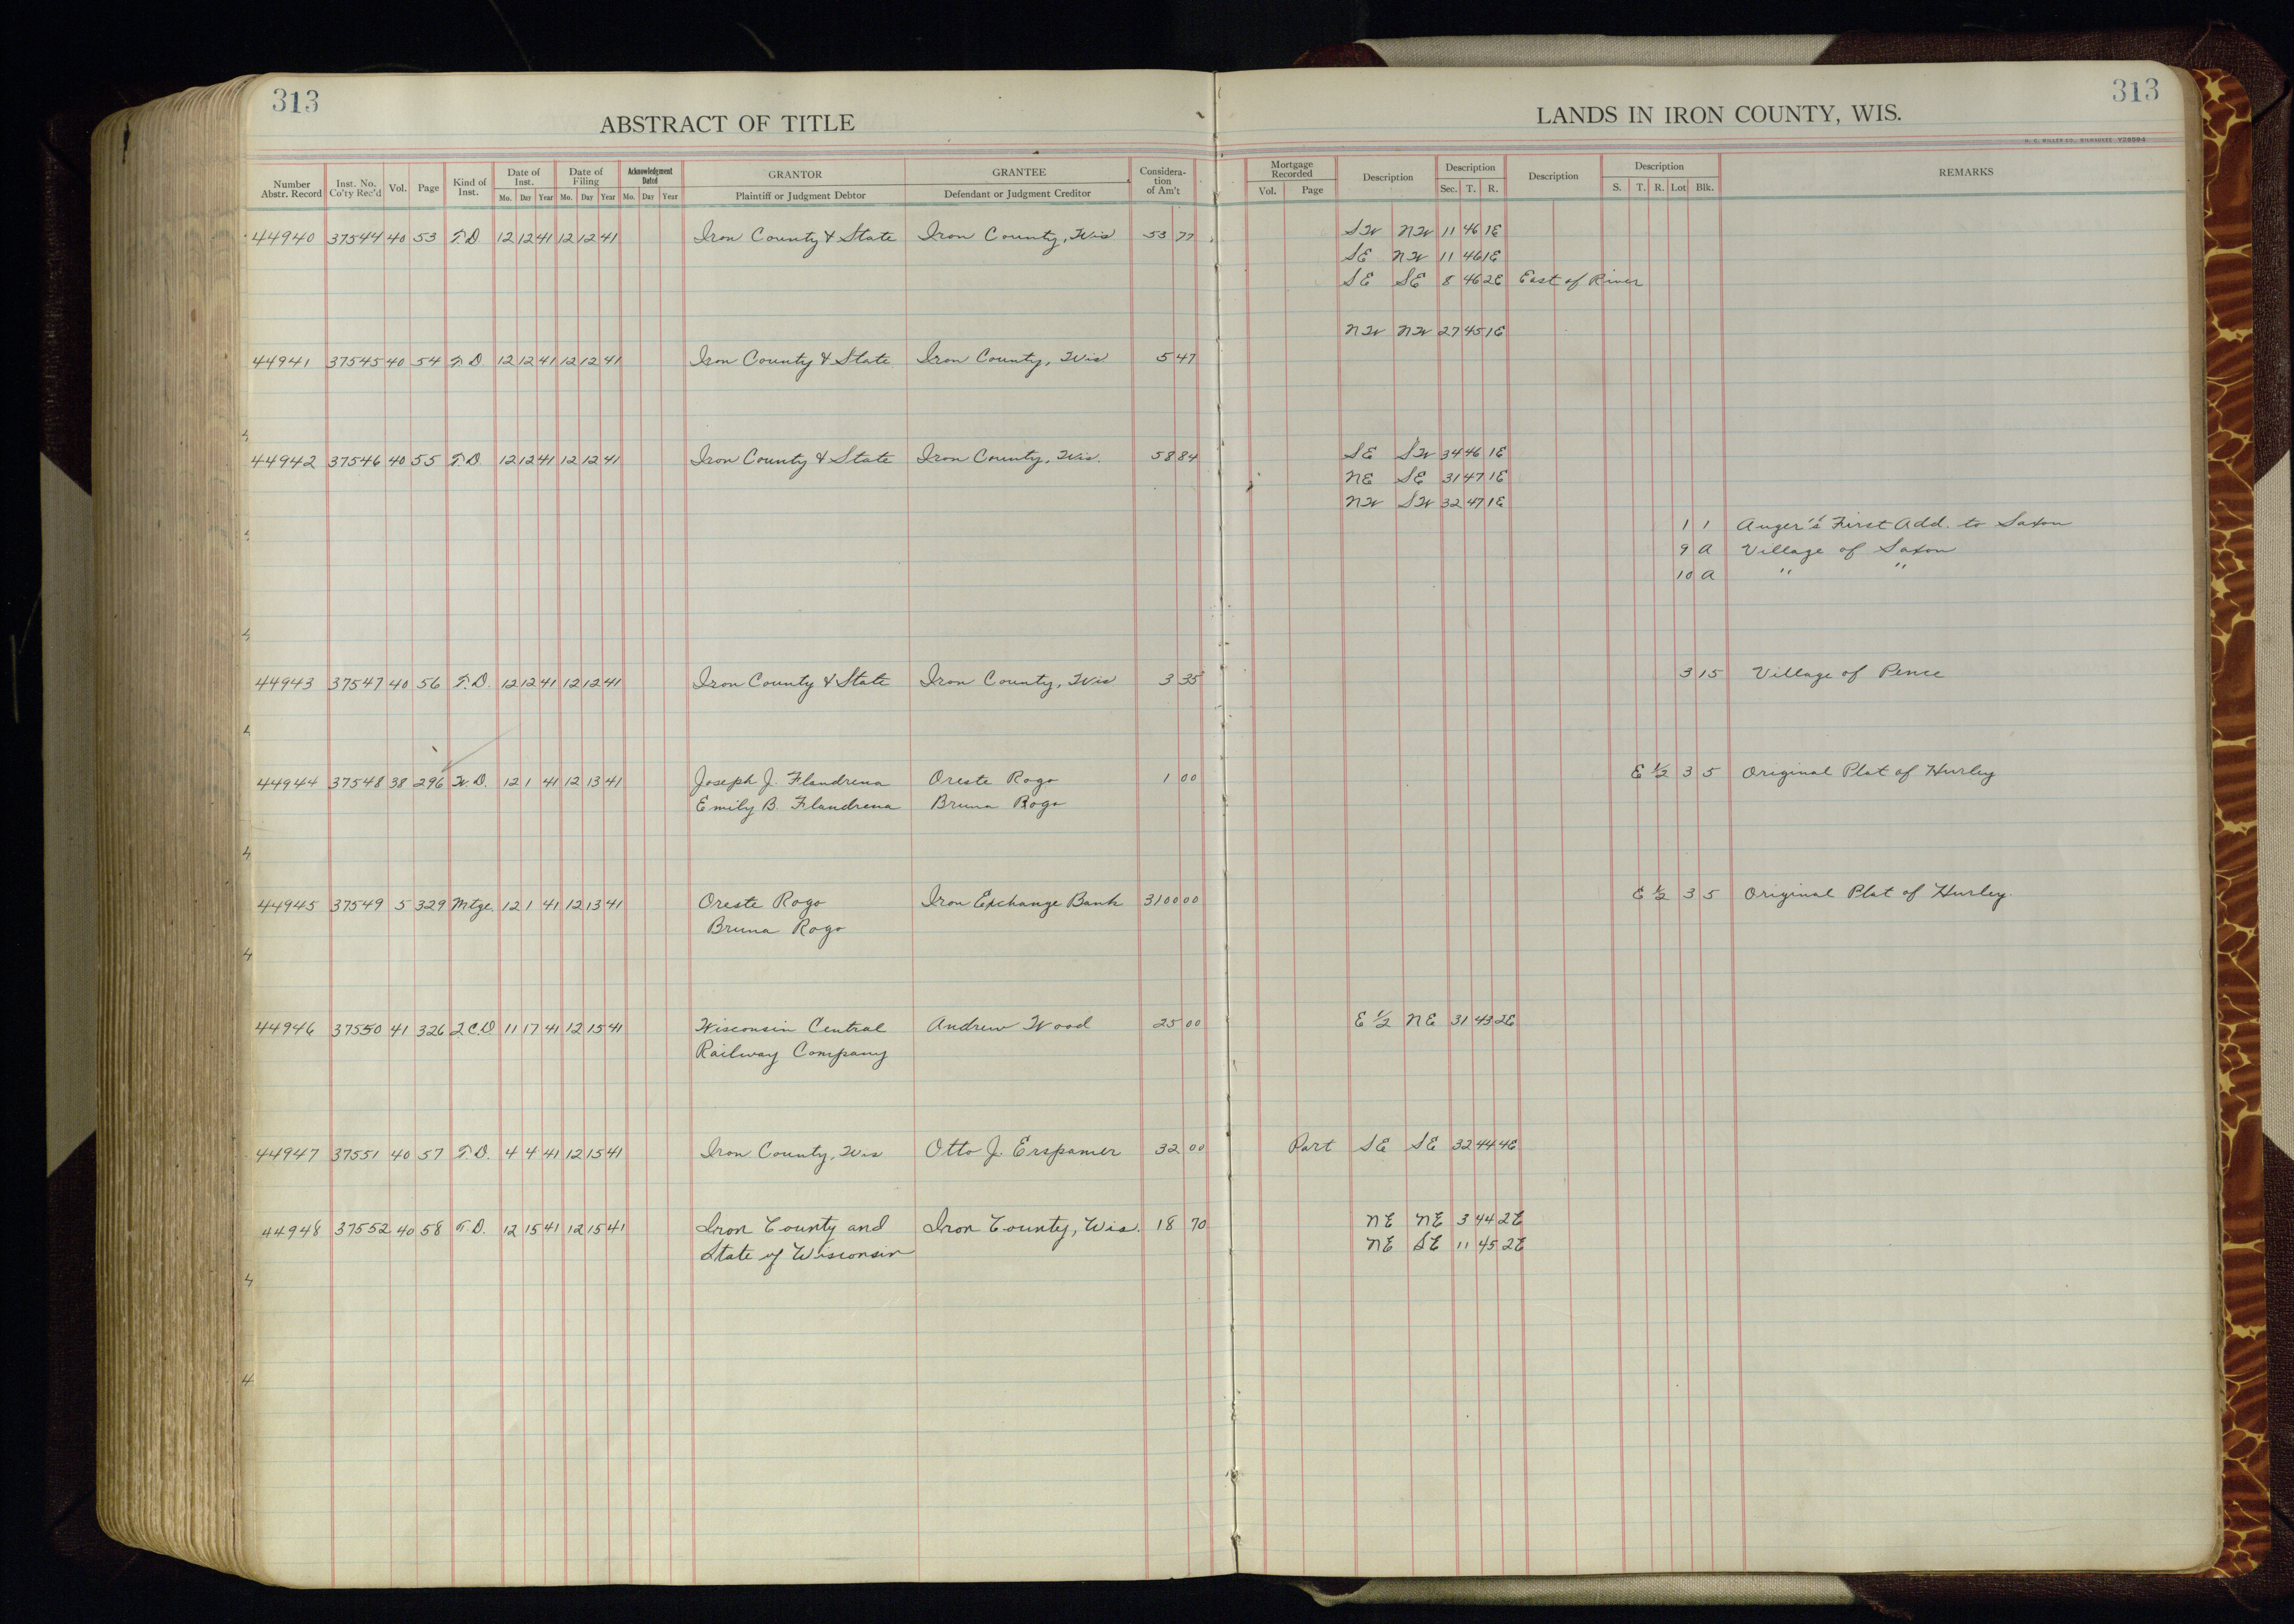 313
ABSTRACT OF TITLE
LANDS IN IRON COUNTY, WIS.
313
H. C. MILLER CO., MILWAUKEE
Number Abstr. Record | Inst. No. Co'ty Rec'd | Vol. | Page | Kind of Inst. | Date of Inst. Mo. Day Year | Date of Filing Mo. Day Year | Acknowledgment Dated Mo. Day Year | GRANTOR Plaintiff or Judgment Debtor | GRANTEE Defendant or Judgment Creditor | Consideration of Am't | Mortgage Recorded Vol. Page | Description | Description Sec. T. R. | Description | Description S. T. R. Lot Blk. | REMARKS
44940 37544 40 53 T.D 12 12 41 12 12 41 Iron County & State Iron County, Wis 53 77 SW NW 11 46 1E
SE NW 11 46 1E
SE SE 8 46 2E East of River
NW NW 27 45 1E
44941 37545 40 54 T.D 12 12 41 12 12 41 Iron County & State Iron County, Wis 5 47
44942 37546 40 55 T.D. 12 12 41 12 12 41 Iron County & State Iron County, Wis. 58 84 SE SW 34 46 1E
NE SE 31 47 1E
NW SW 32 47 1E
1 1 Auger's First Add. to Saxon
9 A Village of Saxon
10 A " "
44943 37547 40 56 T.D. 12 12 41 12 12 41 Iron County & State Iron County, Wis 3 35 3 15 Village of Pence
44944 37548 38 296 W.D. 12 1 41 12 13 41 Joseph J. Flandrena Oreste Rogo 1 00 E 1/2 3 5 Original Plat of Hurley
Emily B. Flandrena Bruna Rogo
44945 37549 5 329 Mtge. 12 1 41 12 13 41 Oreste Rogo Iron Exchange Bank 3100 00 E 1/2 3 5 Original Plat of Hurley.
Bruna Rogo
44946 37550 41 326 Q.C.D 11 17 41 12 15 41 Wisconsin Central Andrew Wood 25 00 E 1/2 NE 31 43 2E
Railway Company
44947 37551 40 57 T.D. 4 4 41 12 15 41 Iron County, Wis Otto J. Erspamer 32 00 Part SE SE 32 44 4E
44948 37552 40 58 T.D. 12 15 41 12 15 41 Iron County and Iron County, Wis. 18 70 NE NE 3 44 2E
State of Wisconsin NE SE 11 45 2E